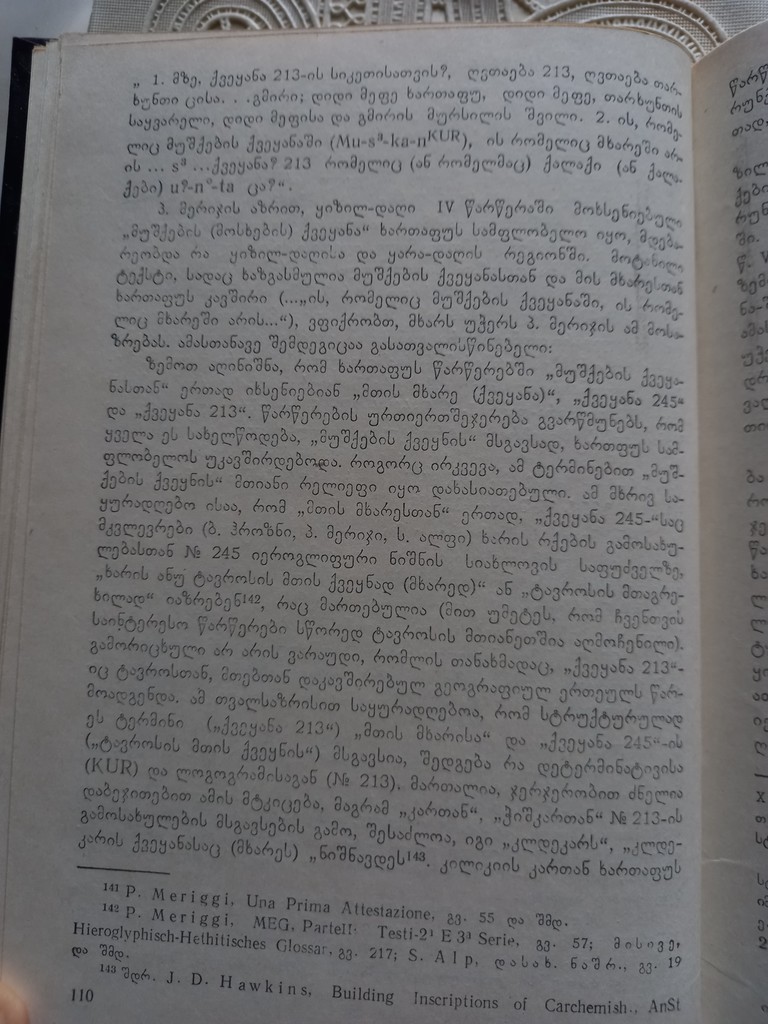 „ 1. მზე, ქვეყანა 213-ის სიკეთისათვის?, ღვთაება 213, ღვთაება თარ-
ხუნთი ცისა. . .გმირი; დიდი მეფე ხართაფუ, დიდი მეფე, თარხუნთის
საყვარელი, დიდი მეფისა და გმირის მურსილის შვილი. 2. ის, რომე-
ლიც მუშქების ქვეყანაში (Mu-sᵃ-ka-nᴷᵁᴿ), ის რომელიც მხარეში არ
ის ... sᵃ ...ქვეყანა? 213 რომელიც (ან რომელმაც) ქალაქი (ან ქალა-
ქები) u?-nᵃ-ta ცა?“.
პ. მერიჯის აზრით, ყიზილ-დაღი IV წარწერაში მოხსენიებული
„მუშქების (მოსხების) ქვეყანა“ ხართაფუს სამფლობელო იყო, მდება-
რეობდა რა ყიზილ-დაღისა და ყარა-დაღის რეგიონში. მოტანილი
ტექსტი, სადაც ხაზგასმულია მუშქების ქვეყანასთან და მის მხარესთან
ხართაფუს კავშირი (...„ის, რომელიც მუშქების ქვეყანაში, ის რომე-
ლიც მხარეში არის...“), ვფიქრობთ, მხარს უჭერს პ. მერიჯის ამ მოსა-
ზრებას. ამასთანავე შემდეგიცაა გასათვალისწინებელი:
ზემოთ აღინიშნა, რომ ხართაფუს წარწერებში „მუშქების ქვეყა-
ნასთან“ ერთად იხსენიებიან „მთის მხარე (ქვეყანა)“, „ქვეყანა 245“
და „ქვეყანა 213“. წარწერების ურთიერთშეჯერება გვარწმუნებს, რომ
ყველა ეს სახელწოდება, „მუშქების ქვეყნის“ მსგავსად, ხართფუს სამ-
ფლობელოს უკავშირდებოდა. როგორც ირკვევა, ამ ტერმინებით „მუშ-
ქების ქვეყნის“ მთიანი რელიეფი იყო დახასიათებული. ამ მხრივ სა-
ყურადღებო ისაა, რომ „მთის მხარესთან“ ერთად, „ქვეყანა 245-“საც
მკვლევრები (ბ. ჰროზნი, პ. მერიჯი, ს. ალფი) ხარის რქების გამოსახუ-
ლებასთან № 245 იეროგლიფური ნიშნის სიახლოვის საფუძველზე,
„ხარის ანუ ტავროსის მთის ქვეყნად (მხარედ)“ ან „ტავროსის მთაგრე-
ხილად“ იაზრებენ¹⁴², რაც მართებულია (მით უმეტეს, რომ ჩვენთვის
საინტერესო წარწერები სწორედ ტავროსის მთიანეთშია აღმოჩენილი).
გამორიცხული არ არის ვარაუდი, რომლის თანახმადაც, „ქვეყანა 213“-
იც ტავროსთან, მთებთან დაკავშირებულ გეოგრაფიულ ერთეულს წარ-
მოადგენდა. ამ თვალსაზრისით საყურადღებოა, რომ სტრუქტურულად
ეს ტერმინი („ქვეყანა 213“) „მთის მხარისა“ და „ქვეყანა 245“-ის
(„ტავროსის მთის ქვეყნის“) მსგავსია, შედგება რა დეტერმინატივისა
(KUR) და ლოგოგრამისაგან (№ 213). მართალია, ჯერჯერობით ძნელია
დაბეჯითებით ამის მტკიცება, მაგრამ „კართან“, „ჭიშკართან“ № 213-ის
გამოსახულების მსგავსების გამო, შესაძლოა, იგი „კლდეკარს“, „კლდე-
კარის ქვეყანასაც (მხარეს) „ნიშნავდეს¹⁴³. კილიკიის კართან ხართაფუს
¹⁴¹ P. Meriggi, Una Prima Attestazione, გვ. 55 და შმდ.
¹⁴² P. Meriggi, MEG, ParteII: Testi-2¹ E 3ᵃ Serie, გვ. 57; მისივე,
Hieroglyphisch-Hethitisches Glossar, გვ. 217; S. Alp, დასახ. ნაშრ., გვ. 19
და შმდ.
¹⁴³ შდრ. J. D. Hawkins, Building Inscriptions of Carchemish., AnSt
110